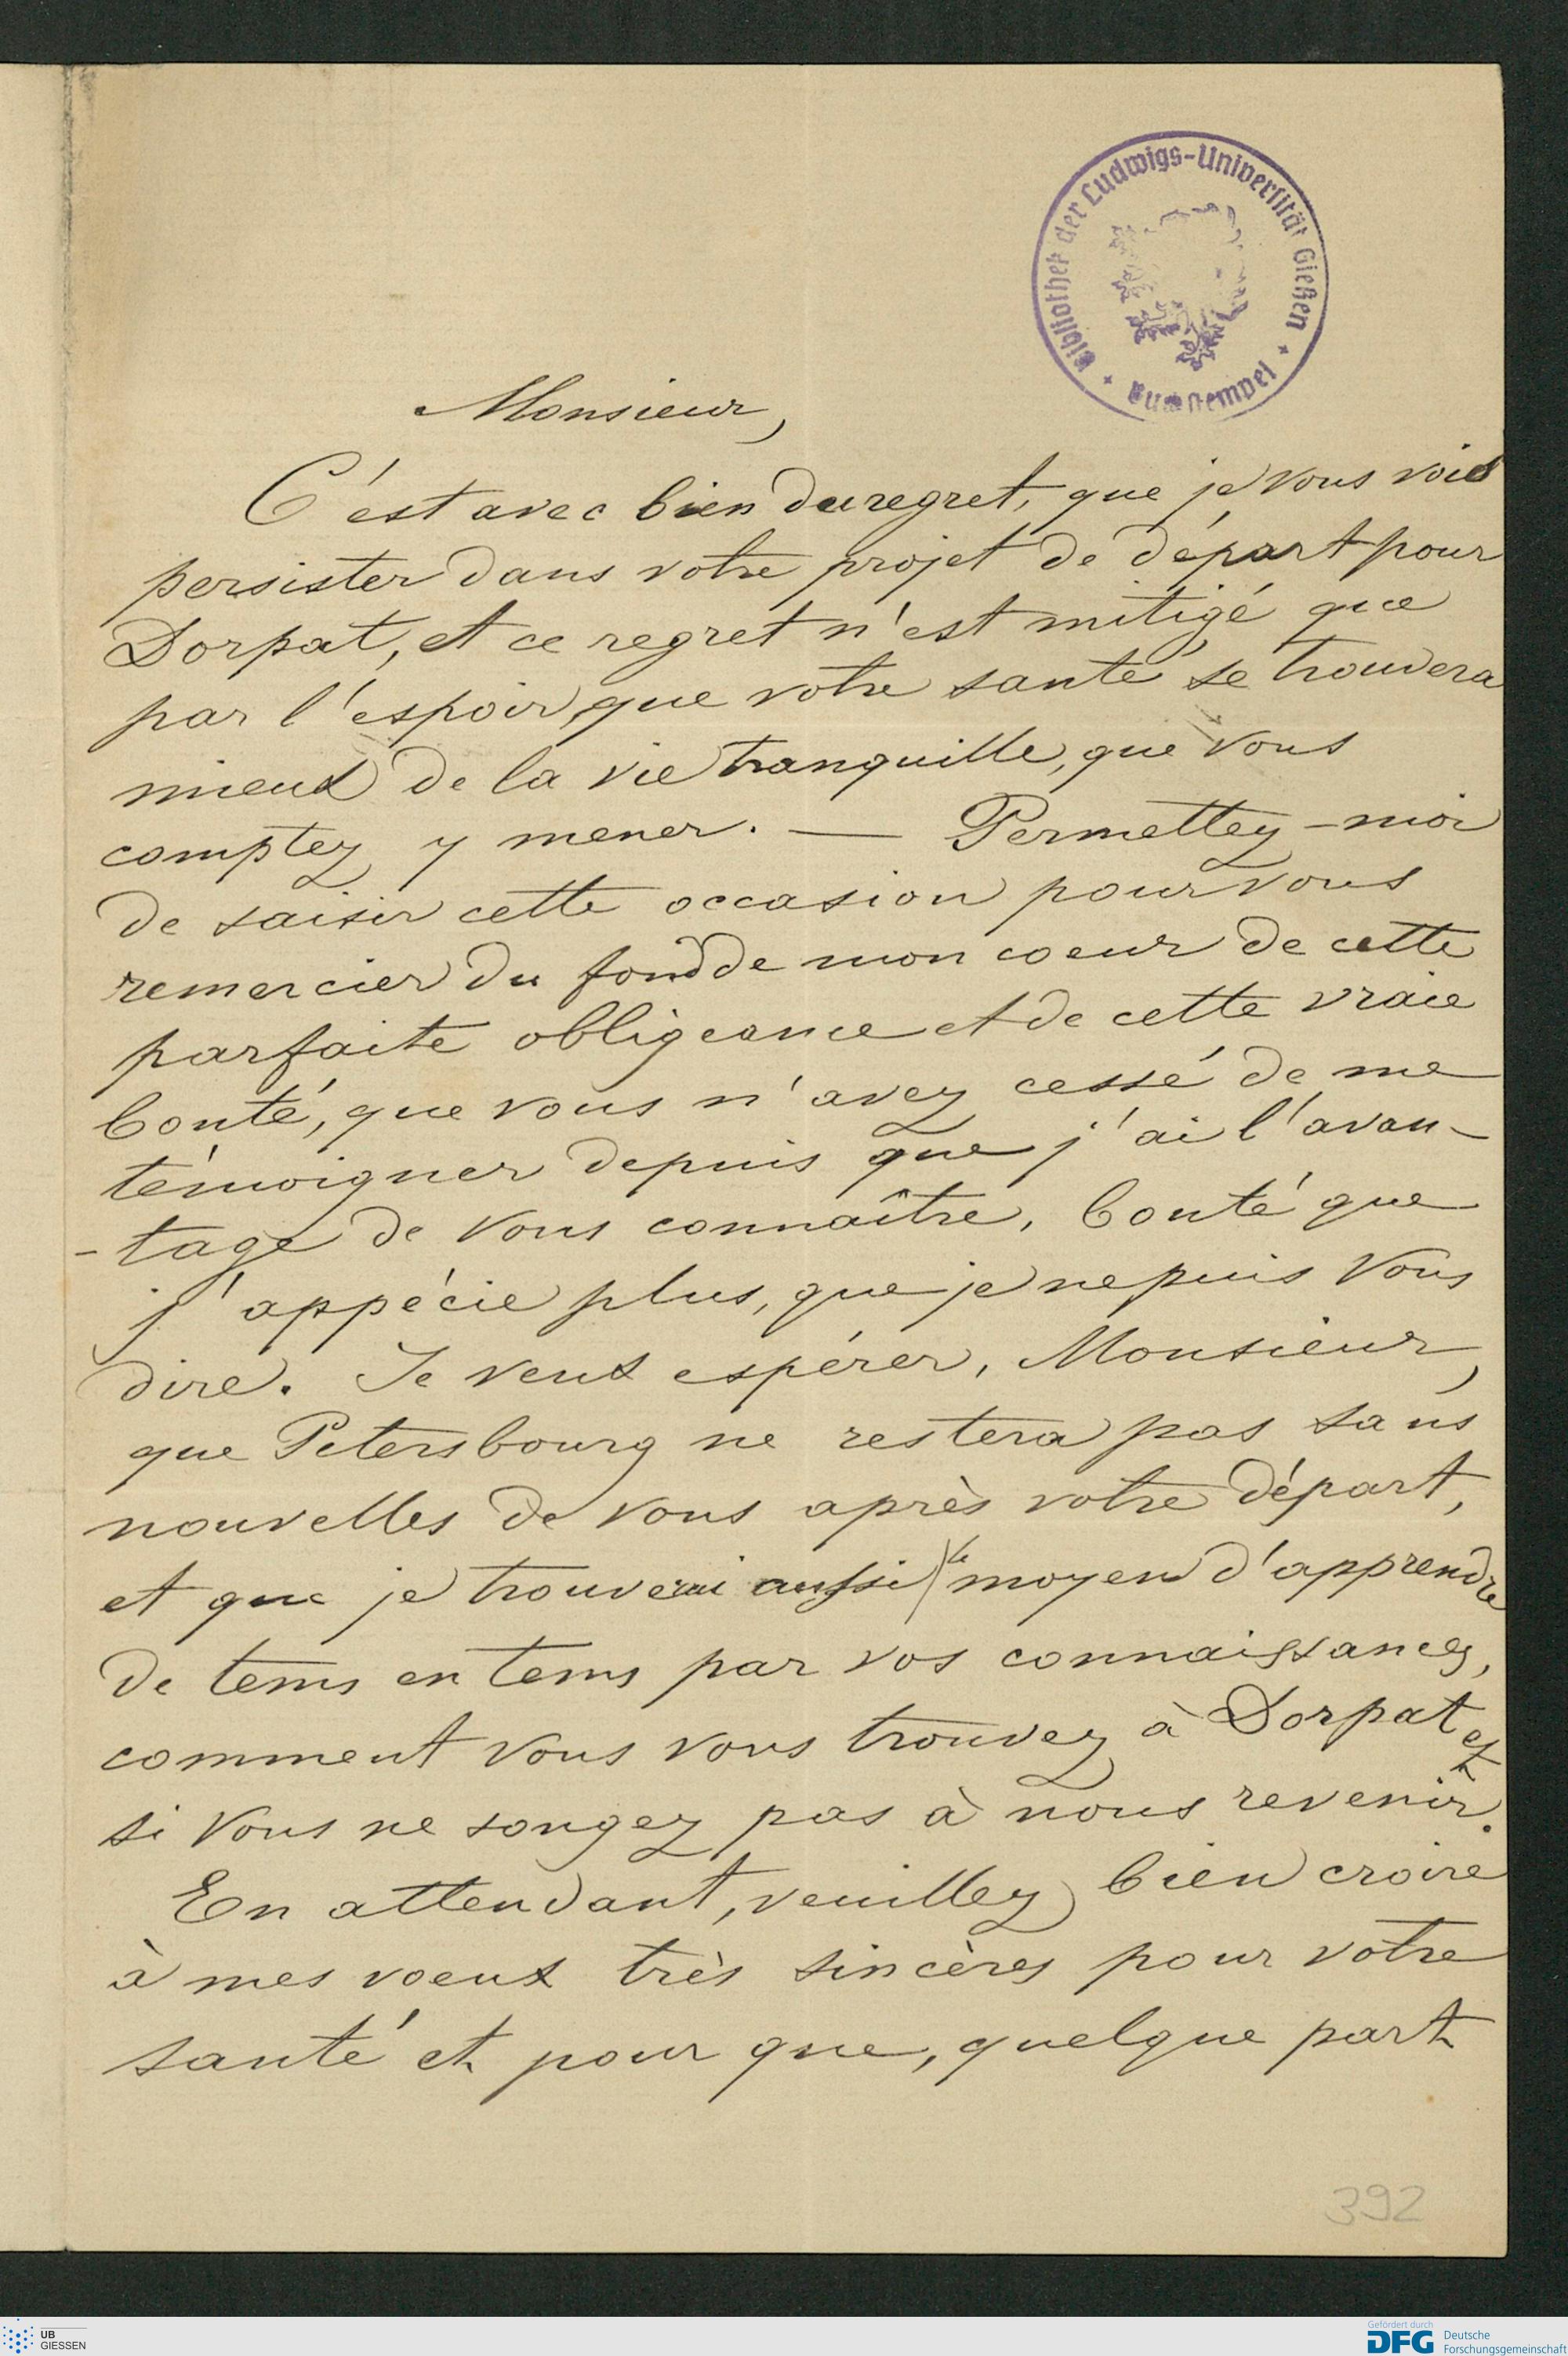 Bibliothek der Ludwigs-Universität Gießen
Monsieur,
C'est avec bien du regret, que je vous vois
persister dans votre projet de départ pour
Dorpat, et ce regret n'est mitigé que
par l'espoir, que votre santé se trouvera
mieux de la vie tranquille, que vous
comptez y mener. — Permettez-moi
de saisir cette occasion pour vous
remercier du fond de mon coeur de cette
parfaite obligeance et de cette vraie
bonté, que vous n'avez cessé de me
témoigner depuis que j'ai l'avan-
-tage de vous connaître, bonté que
j'appécie plus, que je ne puis vous
dire. Je veux espérer, Monsieur,
que Petersbourg ne restera pas sans
nouvelles de vous après votre départ,
et que je trouverai aussi le moyen d'apprendre
de tems en tems par vos connaissances,
comment vous vous trouvez à Dorpat et
si vous ne songez pas à nous revenir.
En attendant, veuillez bien croire
à mes voeux très sincères pour votre
santé et pour que, quelque part
392
UB
GIESSEN
Gefördert durch
DFG Deutsche
Forschungsgemeinschaft